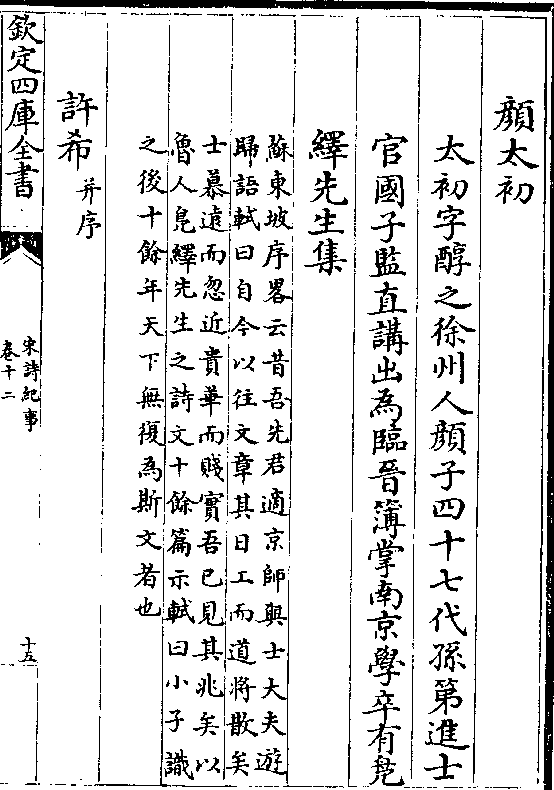 顔太初
太初字醇之徐州人顔子四十七代孫第進士
官國子監直講出為臨晉簿掌南京學卒有鳬
繹先生集
蘇東坡序畧云昔吾先君適京師與士大夫遊
歸語軾曰自今以往文章其日工而道將散矣
士慕遠而忽近貴華而賤實吾已見其兆矣以
魯人鳬繹先生之詩文十餘篇示軾曰小子識
之後十餘年天下無復為斯文者也
許希并序
欽定四庫全書
宋詩紀事
卷十二
十五